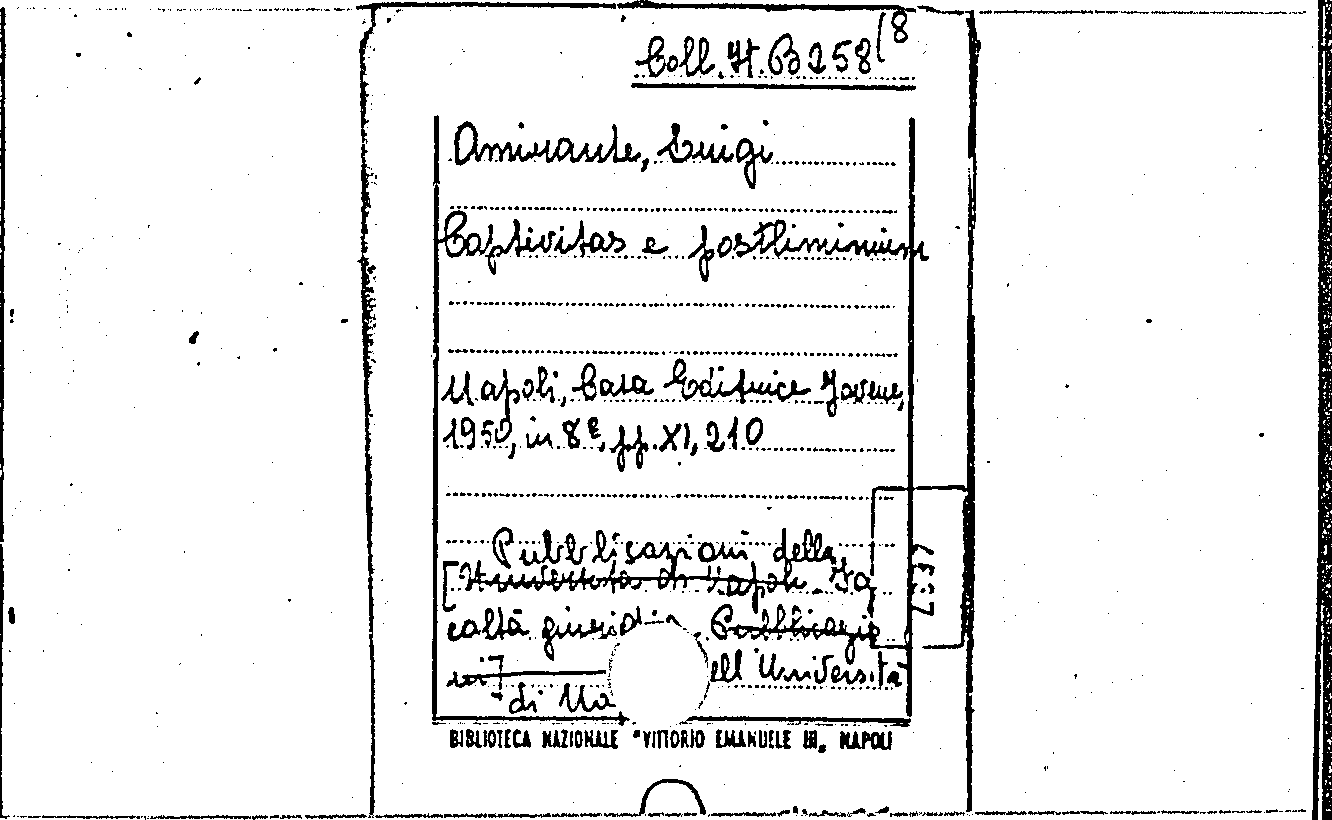 Coll. It. B 258 (8
Amirante, Luigi
Captivitas e postliminium
Napoli, Casa Editrice Jovene,
1950, in 8º, pp. XI, 210
Pubblicazioni della
[Università di Napoli. Fa
coltà giuridi Pubblicazio
ni] ell'Università
di Na
BIBLIOTECA NAZIONALE "VITTORIO EMANUELE III„ NAPOLI